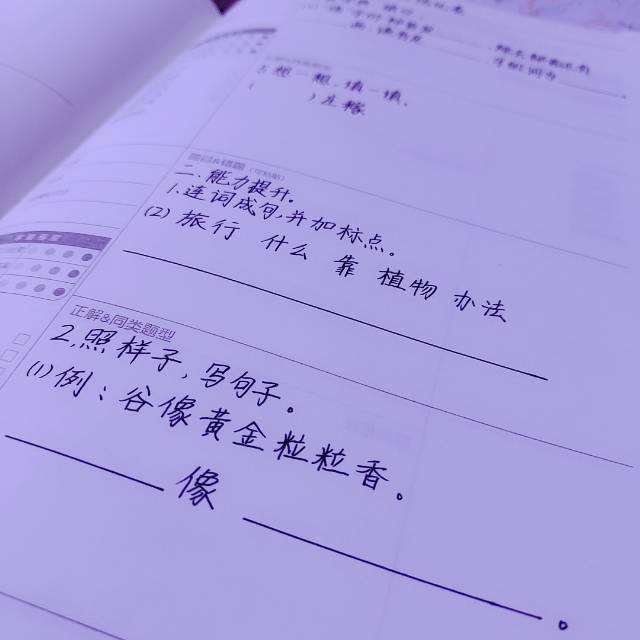 3.想一想，填一填。
(　　)及稼
题目&错题（可粘贴）
二、能力提升。
1.连词成句，并加标点。
(2) 旅行 什么 靠 植物 办法
正解&同类题型
2.照样子，写句子。
(1)例：谷像黄金粒粒香。
像 。